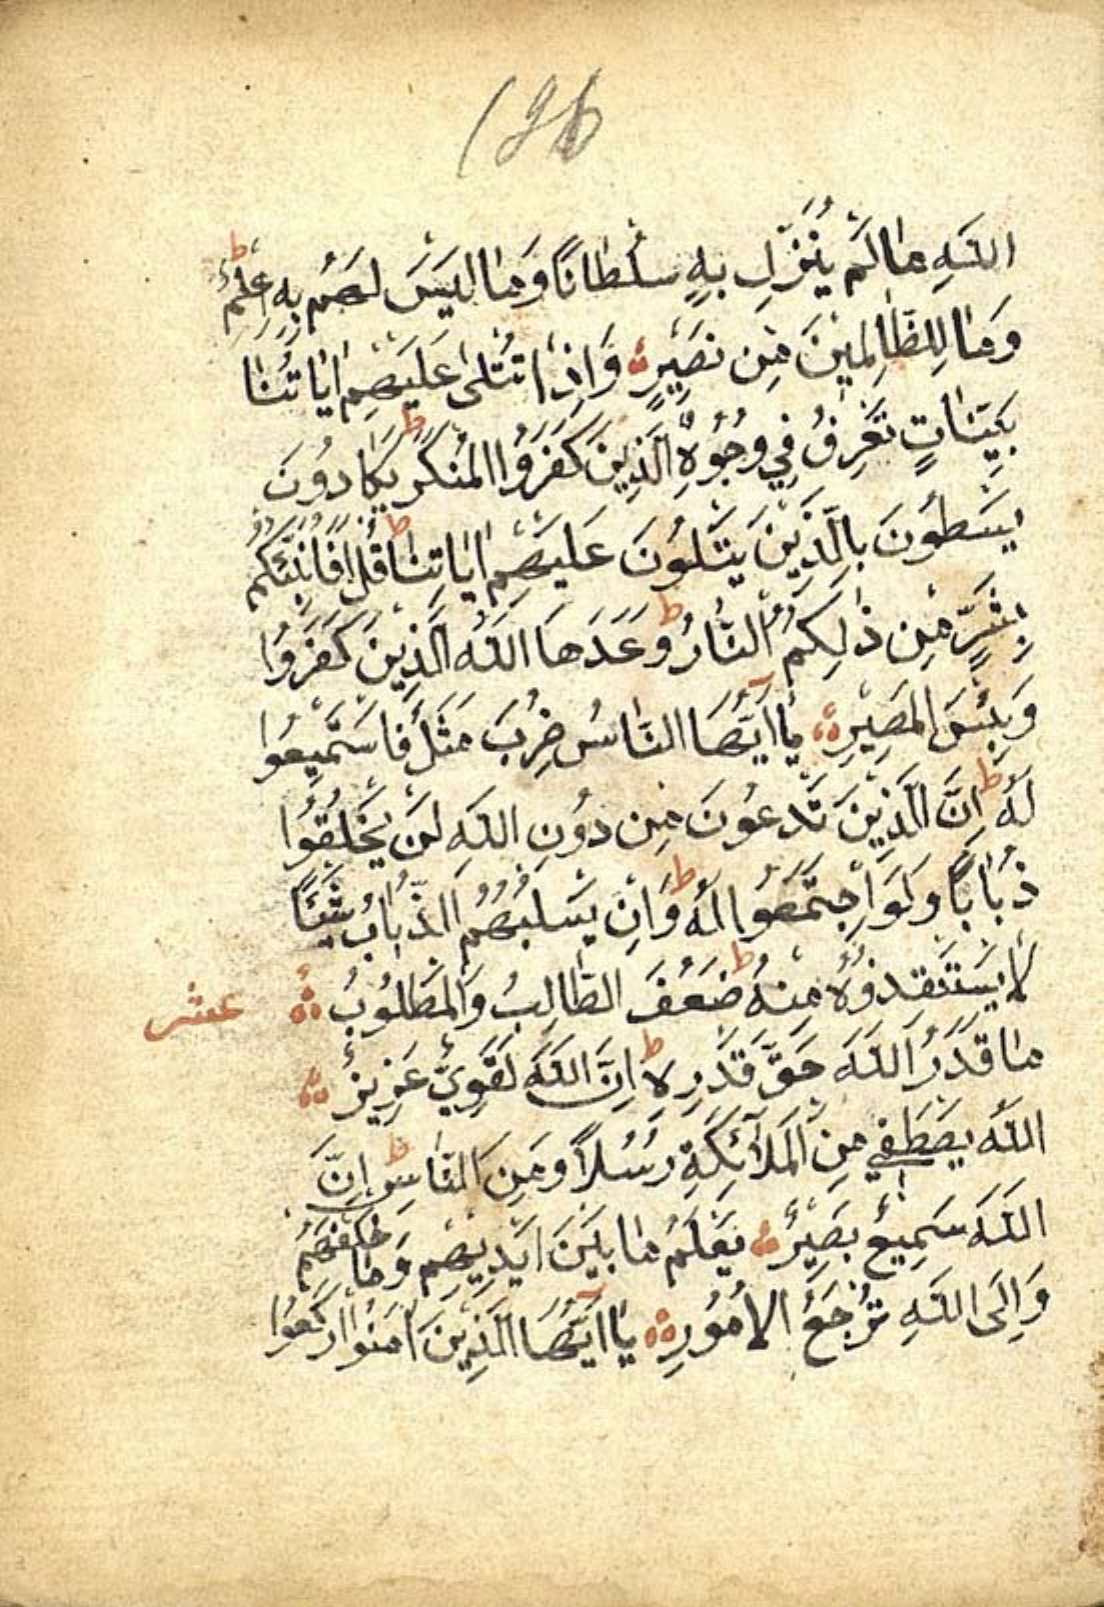 196
اللَّهِ مَا لَمْ يُنَزِّلْ بِهِ سُلْطَانًا وَمَا لَيْسَ لَهُمْ بِهِ عِلْمٌ ط
وَمَا لِلظَّالِمِينَ مِنْ نَصِيرٍ وَاِذَا تُتْلَى عَلَيْهِمْ اٰيَاتُنَا
بَيِّنَاتٍ تَعْرِفُ فِي وُجُوهِ الَّذِينَ كَفَرُوا الْمُنْكَرَ ط يَكَادُونَ
يَسْطُونَ بِالَّذِينَ يَتْلُونَ عَلَيْهِمْ اٰيَاتِنَا ط قُلْ اَفَاُنَبِّئُكُمْ
بِشَرٍّ مِنْ ذٰلِكُمُ النَّارُ ط وَعَدَهَا اللَّهُ الَّذِينَ كَفَرُوا
وَبِئْسَ الْمَصِيرِ يَا اَيُّهَا النَّاسُ ضُرِبَ مَثَلٌ فَاسْتَمِعُوا
لَهُ ط اِنَّ الَّذِينَ تَدْعُونَ مِنْ دُونِ اللَّهِ لَنْ يَخْلُقُوا
ذُبَابًا وَلَوِ اجْتَمَعُوا لَهُ ط وَاِنْ يَسْلُبْهُمُ الذُّبَابُ شَيْئًا
لَا يَسْتَنْقِذُوهُ مِنْهُ ط ضَعُفَ الطَّالِبُ وَالْمَطْلُوبُ عشر
مَا قَدَرُ اللَّهَ حَقَّ قَدْرِهِ ط اِنَّ اللَّهَ لَقَوِيٌّ عَزِيزٌ
اللَّهُ يَصْطَفِي مِنَ الْمَلَآئِكَةِ رُسُلًا وَمِنَ النَّاسِ ط اِنَّ
اللَّهَ سَمِيعٌ بَصِيرٌ يَعْلَمُ مَا بَيْنَ اَيْدِيهِمْ وَمَا خَلْفَهُمْ
وَاِلَى اللَّهِ تُرْجَعُ الْاُمُورِ يَا اَيُّهَا الَّذِينَ اٰمَنُوا ارْكَعُوا